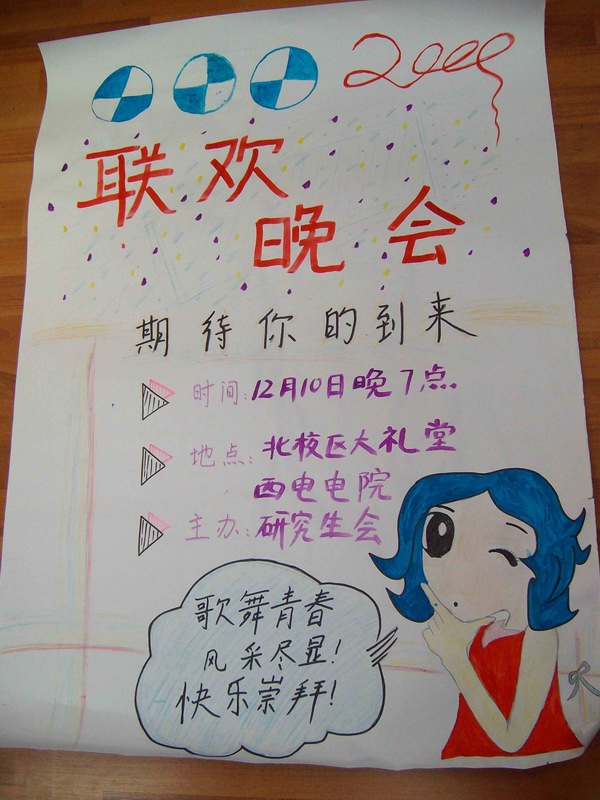 2009
联欢
晚会
期待你的到来
时间:12月10日晚7点
地点:北校区大礼堂
西电电院
主办:研究生会
歌舞青春
风采尽显!
快乐崇拜!